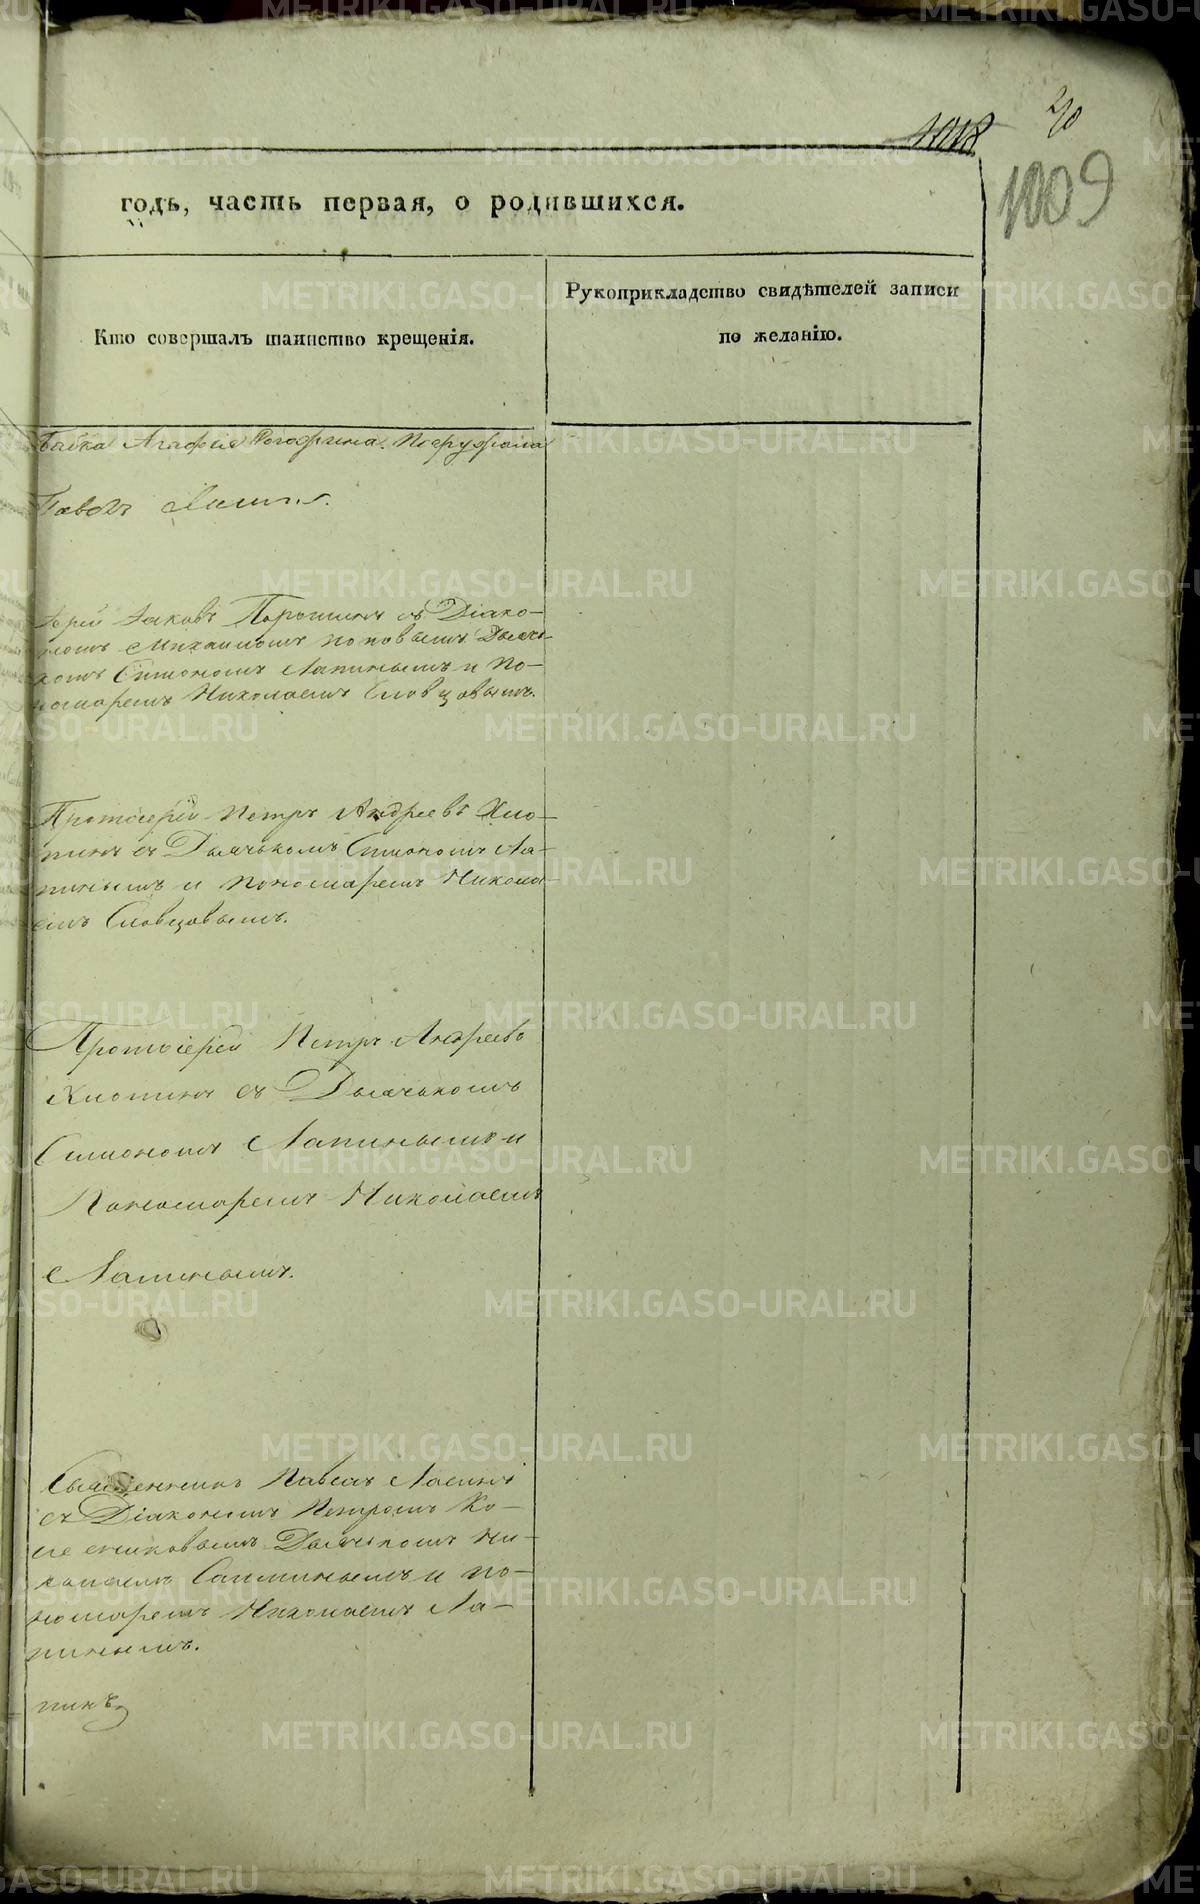 1018
20
1009
годъ, часть первая, о родившихся.
Кто совершалъ таинство крещенія.
Рукоприкладство свидѣтелей записи
по желанію.
Бабка Агафія
Іерей Іаковъ Порошинъ съ Діако-
номъ Михаиломъ Поповымъ Дьячь-
комъ Симономъ Лапинымъ и по-
номаремъ Николаемъ Словцовымъ.
Протоіерей Петръ Андреевъ Хло-
пинъ съ Дьячькомъ Симономъ Ла-
пинымъ и пономаремъ Никола-
емъ Словцовымъ.
Протоіерей Петръ Андреевъ
Хлопинъ съ Дьячькомъ
Симономъ Лапинымъ и
Пономаремъ Николаемъ
Лапинымъ.
Священникъ Павелъ
съ Діакономъ Петромъ Ко-
Дьячькомъ Ни-
колаемъ и по-
номаремъ Николаемъ Ла-
пинымъ.
METRIKI.GASO-URAL.RU